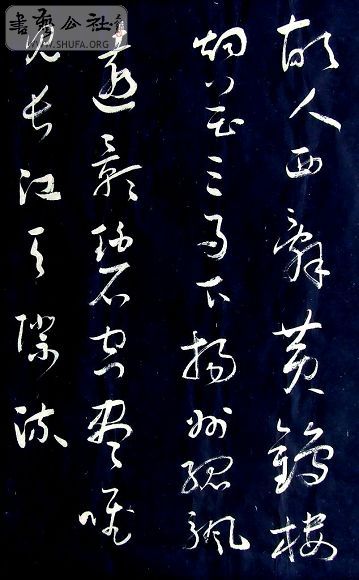 故人西辭黃鶴樓
烟花三月下揚州孤帆
遠影碧空盡唯
見長江天際流
書藝公社
WWW.SHUFA.ORG